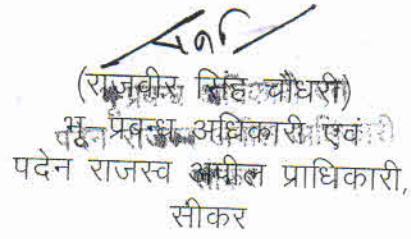 (राजवीर सिंह चौधरी)
भू प्रबन्ध अधिकारी एवं
पदेन राजस्व अपील प्राधिकारी,
सीकर